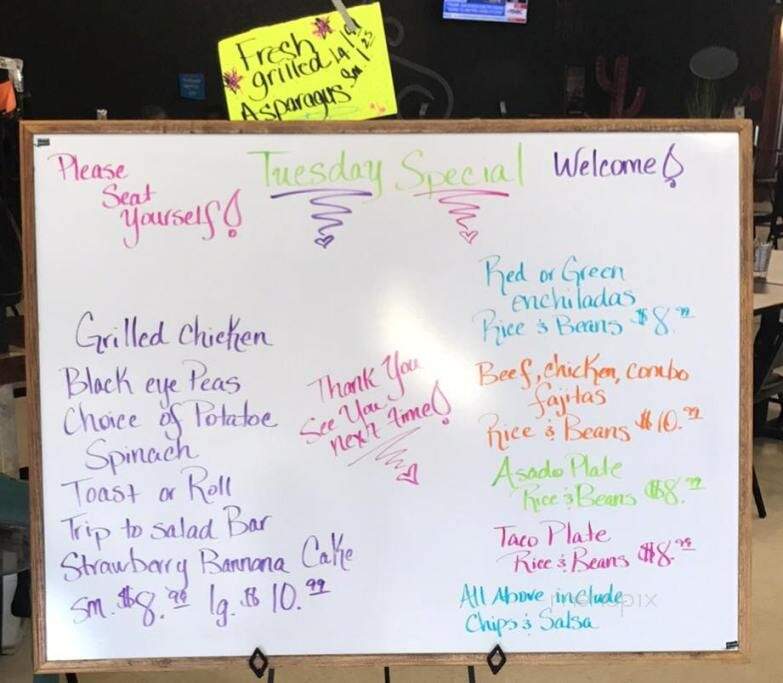 Fresh
grilled lg
Asparagus Sm 1.25
Please
Seat
Yourself!
Tuesday Special
Welcome!
Grilled chicken
Black eye Peas
Choice of Potatoe
Spinach
Toast or Roll
Trip to salad Bar
Strawberry Bannana Cake
Sm. $8.99 lg. $10.99
Thank You
See You
next time!
Red or Green
enchiladas
Rice & Beans $8.99
Beef, chicken, combo
fajitas
Rice & Beans $10.99
Asado Plate
Rice & Beans $8.99
Taco Plate
Rice & Beans $8.99
All Above include
Chips & Salsa